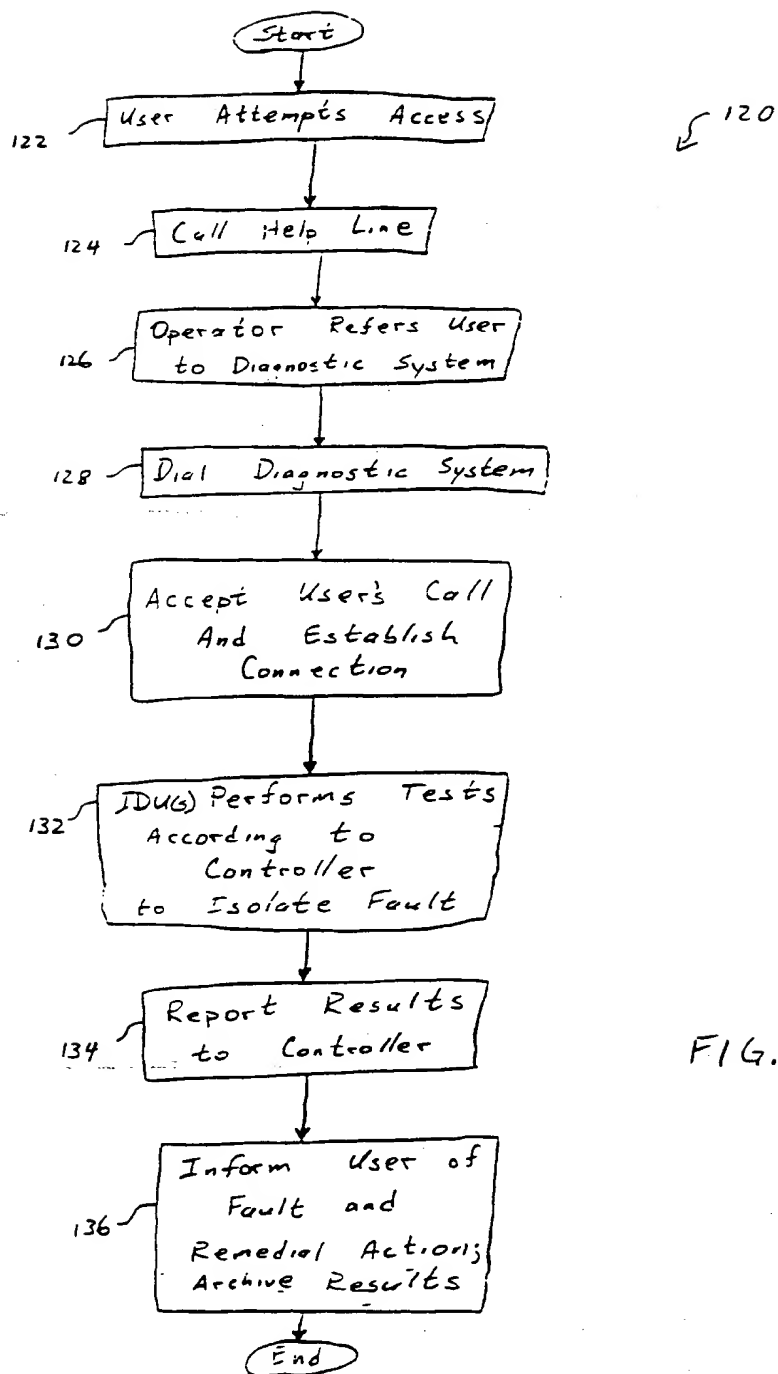 Start
User Attempts Access
122
120
Call Help Line
124
Operator Refers User
126
to Diagnostic System
128
Dial Diagnostic System
Accept User's Call
130
And Establish
Connection
IDU(s) Performs Tests
132
According to
Controller
to Isolate Fault
Report Results
134
to Controller
FIG.
Inform User of
Fault and
136
Remedial Action;
Archive Results
End